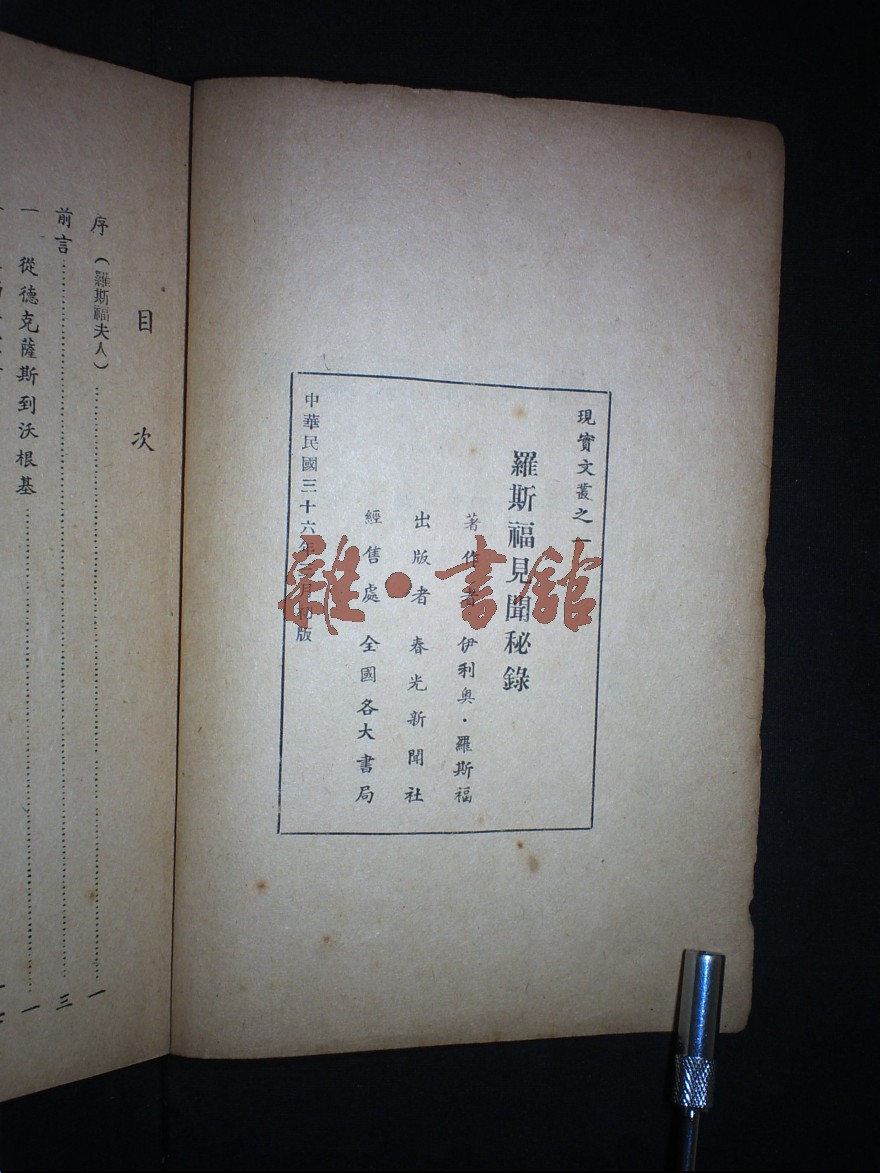 現實文叢之一
羅斯福見聞秘錄
著作者 伊利奧·羅斯福
出版者 春光新聞社
經售處 全國各大書局
中華民國三十六年 月初版
雜·書館
目次
序(羅斯福夫人) 一
前言 三
一 從德克薩斯到沃根基 一